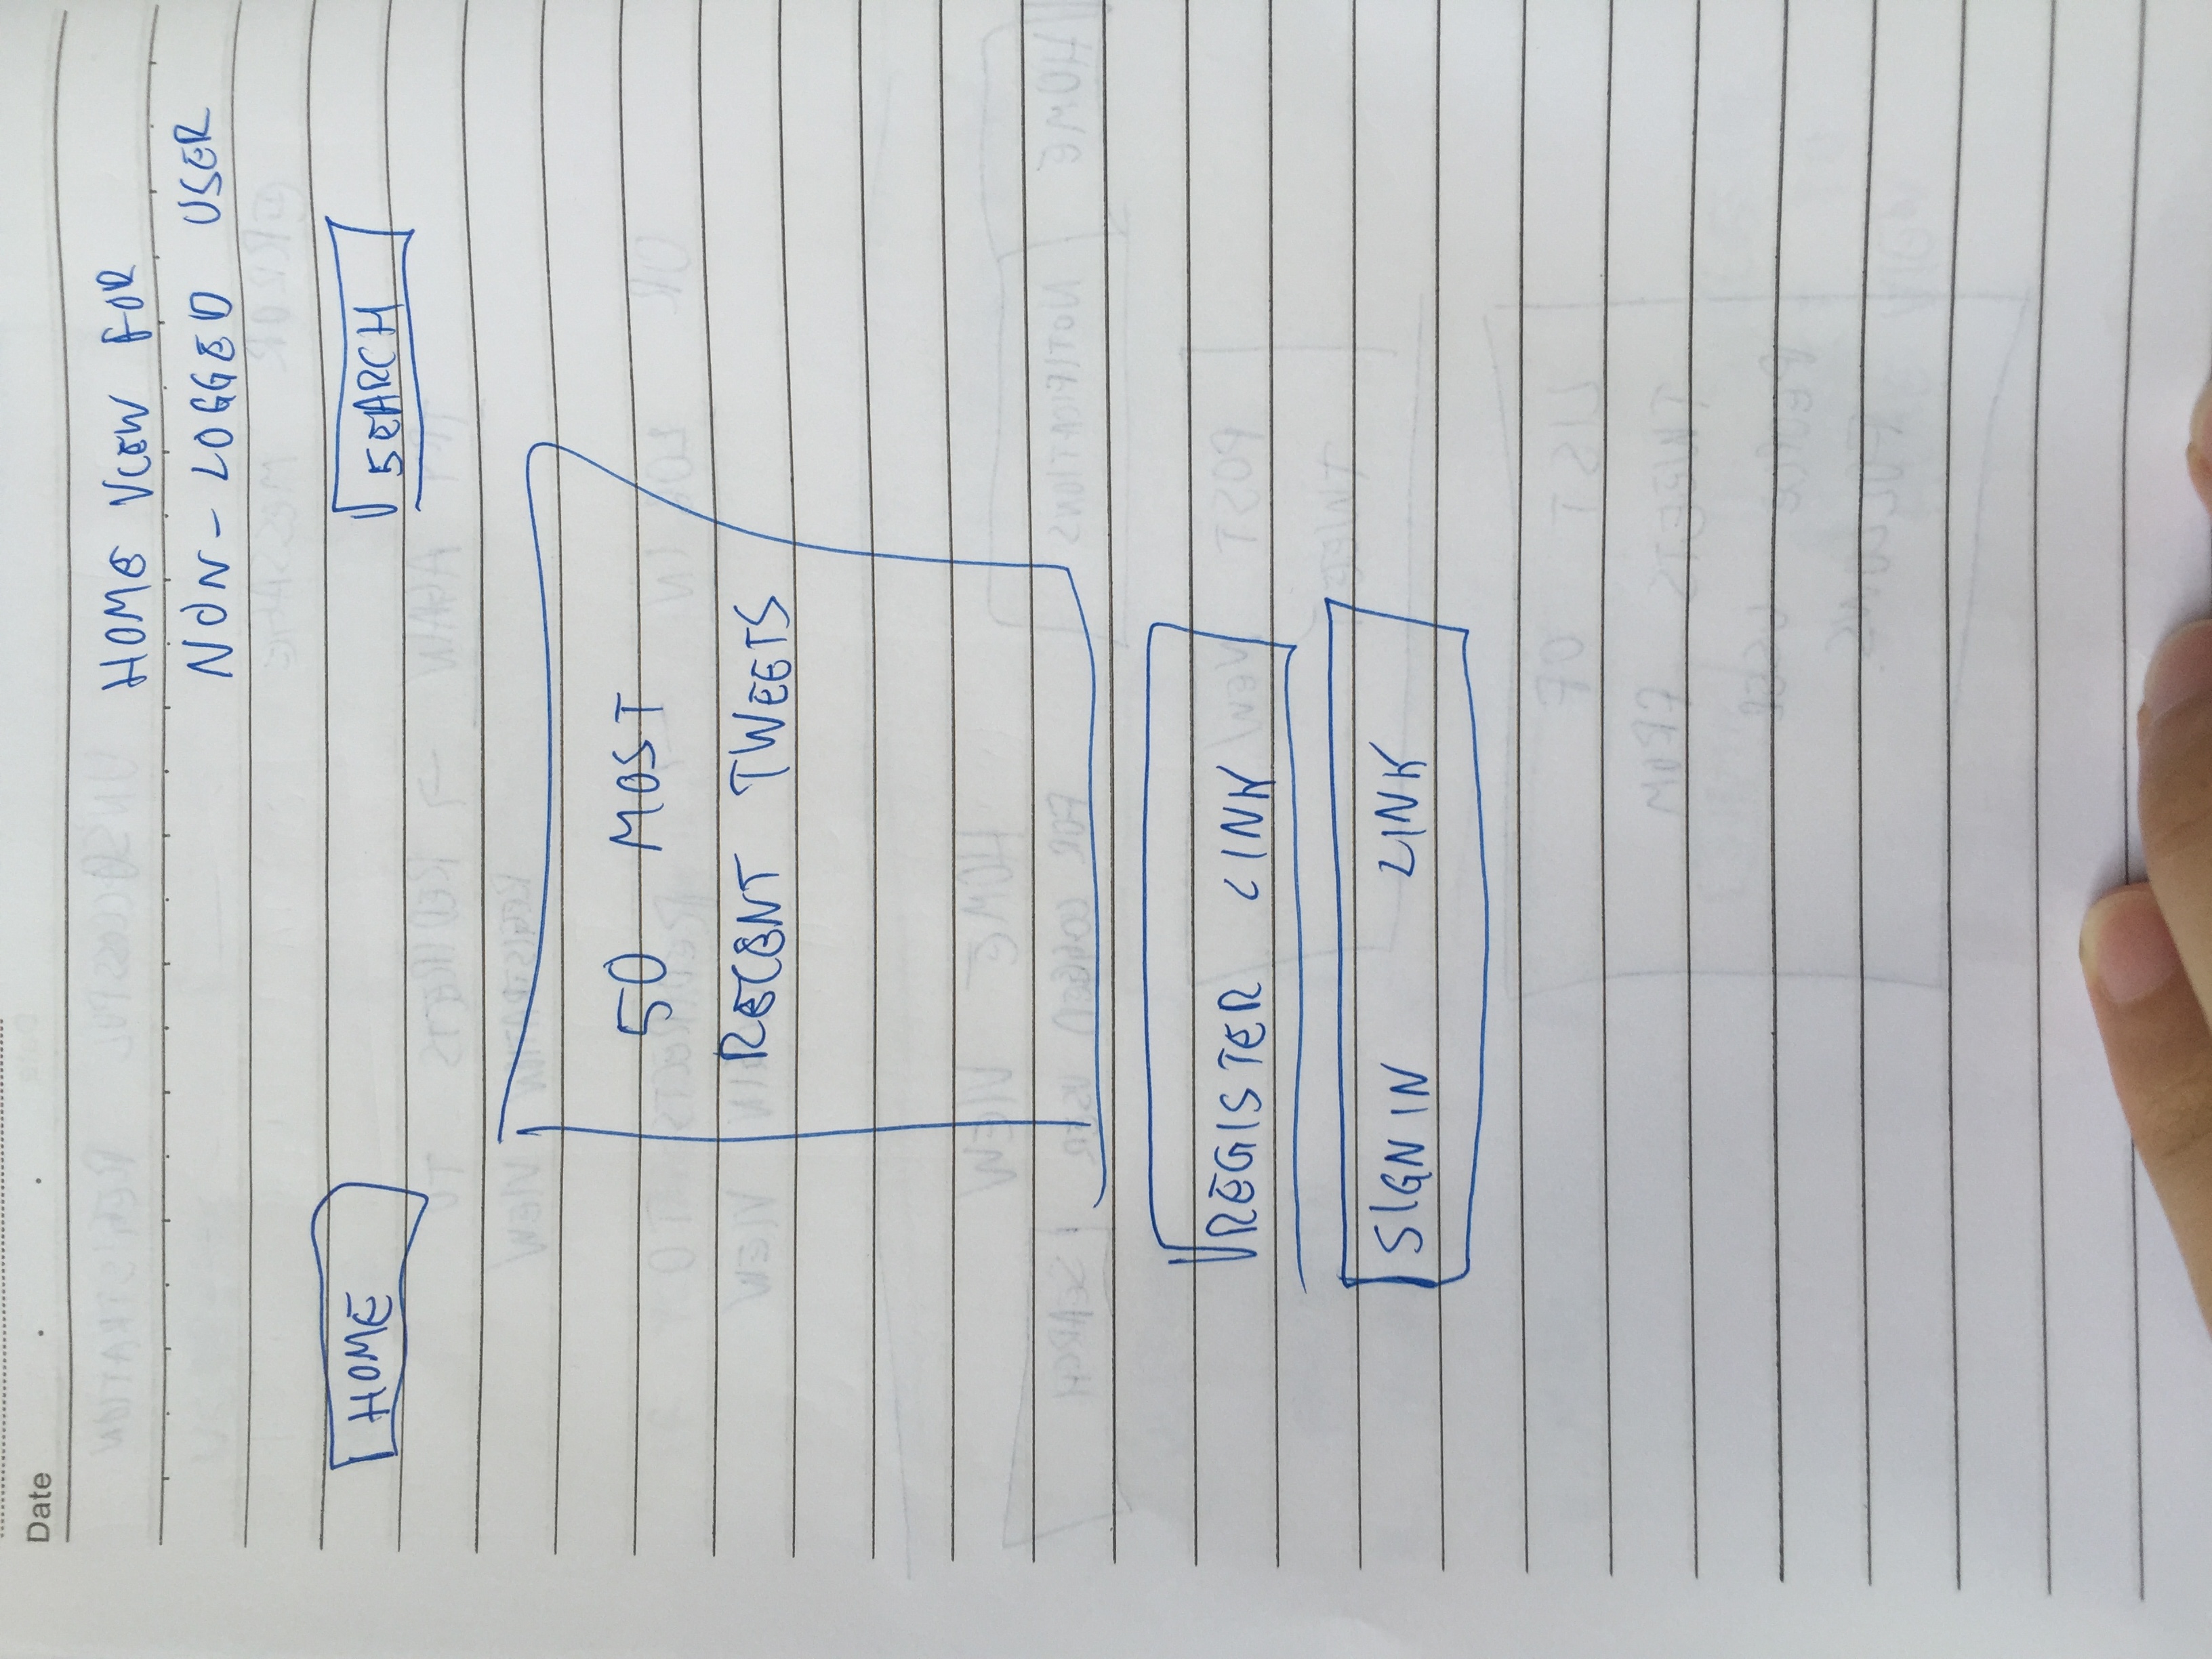 Date
HOME VIEW FOR
NON-LOGGED USER
HOME SEARCH
50 MOST
RECENT TWEETS
REGISTER LINK
SIGN IN LINK